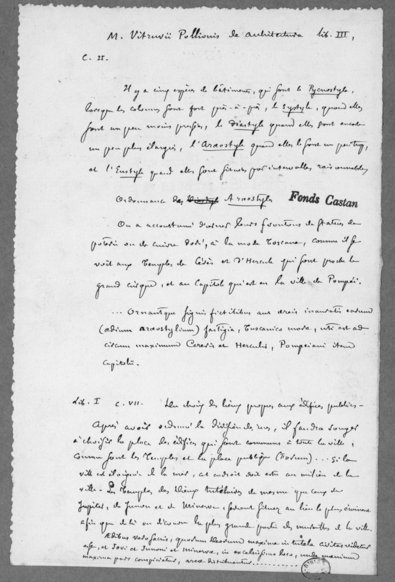 M. Vitruvii Pollionis de architectura lib. III,
C. II.
Il y a cinq espèces de bâtiments, qui sont le Pycnostyle,
lorsque les colonnes sont fort près-à-près, le Systyle, quand elles
sont un peu moins pressées, le Diastyle quand elles sont encore
un peu plus élargies, l'Araostyle quand elles le sont un peu trop,
et l'Eustyle quand elles sont situées par intervalles raisonnables
Ordonnance de Diastyle Araostyle
Fonds Castan
On a accoutumé d'orner leurs frontons de statues de
poterie ou de cuivre doré, à la mode Toscane, comme il se
voit aux Temples de Cérès et d'Hercule qui sont près du
grand cirque, et au Capitole qui est en la ville de Pompéi.
... Ornantque signis fictilibus aut æreis inauratis earum
(ædium aræostylium) fastigia, Tuscanico more, uti est ad
circum maximum Cereris et Herculis, Pompeiani item
Capitolii.
Lib. I C. VII. Du choix des lieux propres aux édifices publics.
Après avoir ordonné la division des rues, il faudra songer
à choisir la place des édifices qui sont communs à toute la ville,
comme sont les Temples et la place publique (Forum)... Si la
ville est éloignée de la mer, cet endroit doit être au milieu de la
ville. Les Temples des Dieux tutélaires de mesme que ceux de
Jupiter, de Junon et de Minerve, seront situez au lieu le plus éminent
afin que de là on découvre la plus grande partie des murailles de la ville.
Ædibus vero sacris, quorum deorum maxime in tutela civitas videtur
esse, et Jovi et Junoni et Minervæ, in excelsissimo loco, unde moenium
maxima pars conspiciatur, areæ distribuantur.